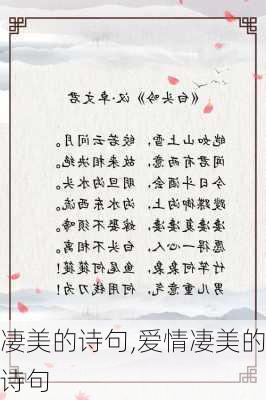 《白头吟》汉·卓文君
皑如山上雪，皎若云间月。
闻君有两意，故来相决绝。
今日斗酒会，明旦沟水头。
躞蹀御沟上，沟水东西流。
凄凄复凄凄，嫁娶不须啼。
愿得一心人，白头不相离。
竹竿何袅袅，鱼尾何簁簁！
男儿重意气，何用钱刀为！
凄美的诗句,爱情凄美的
诗句